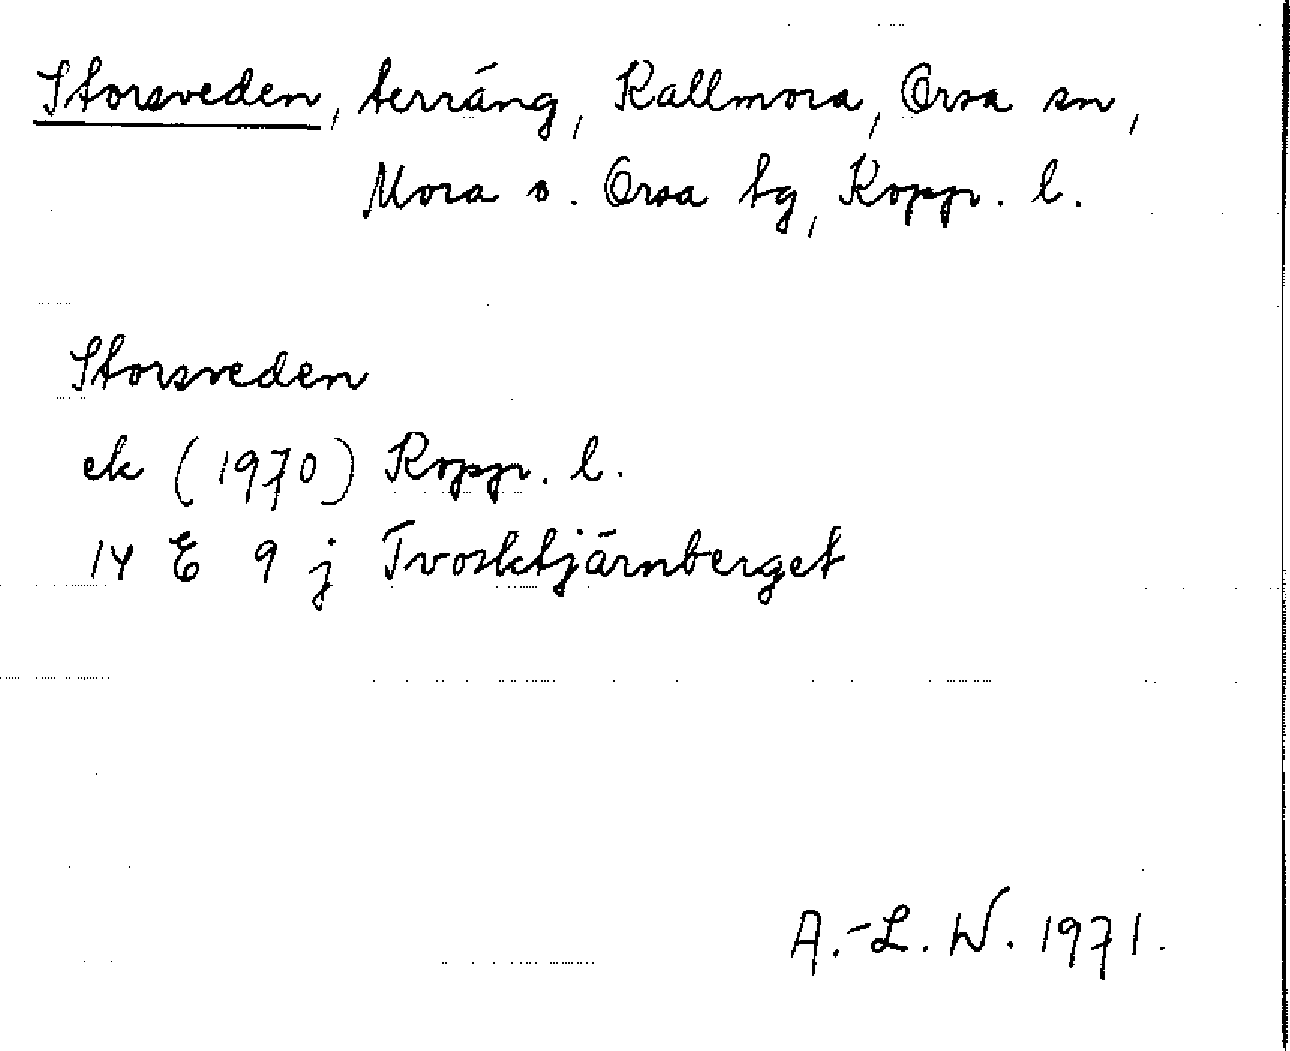 Storsveden, terräng, Kallmora, Orsa sn,
Mora o. Orsa tg, Kopp. l.
Storsveden
ek (1970) Kopp. l.
14 E 9 j Tvosktjärnberget
A.-L. W. 1971.